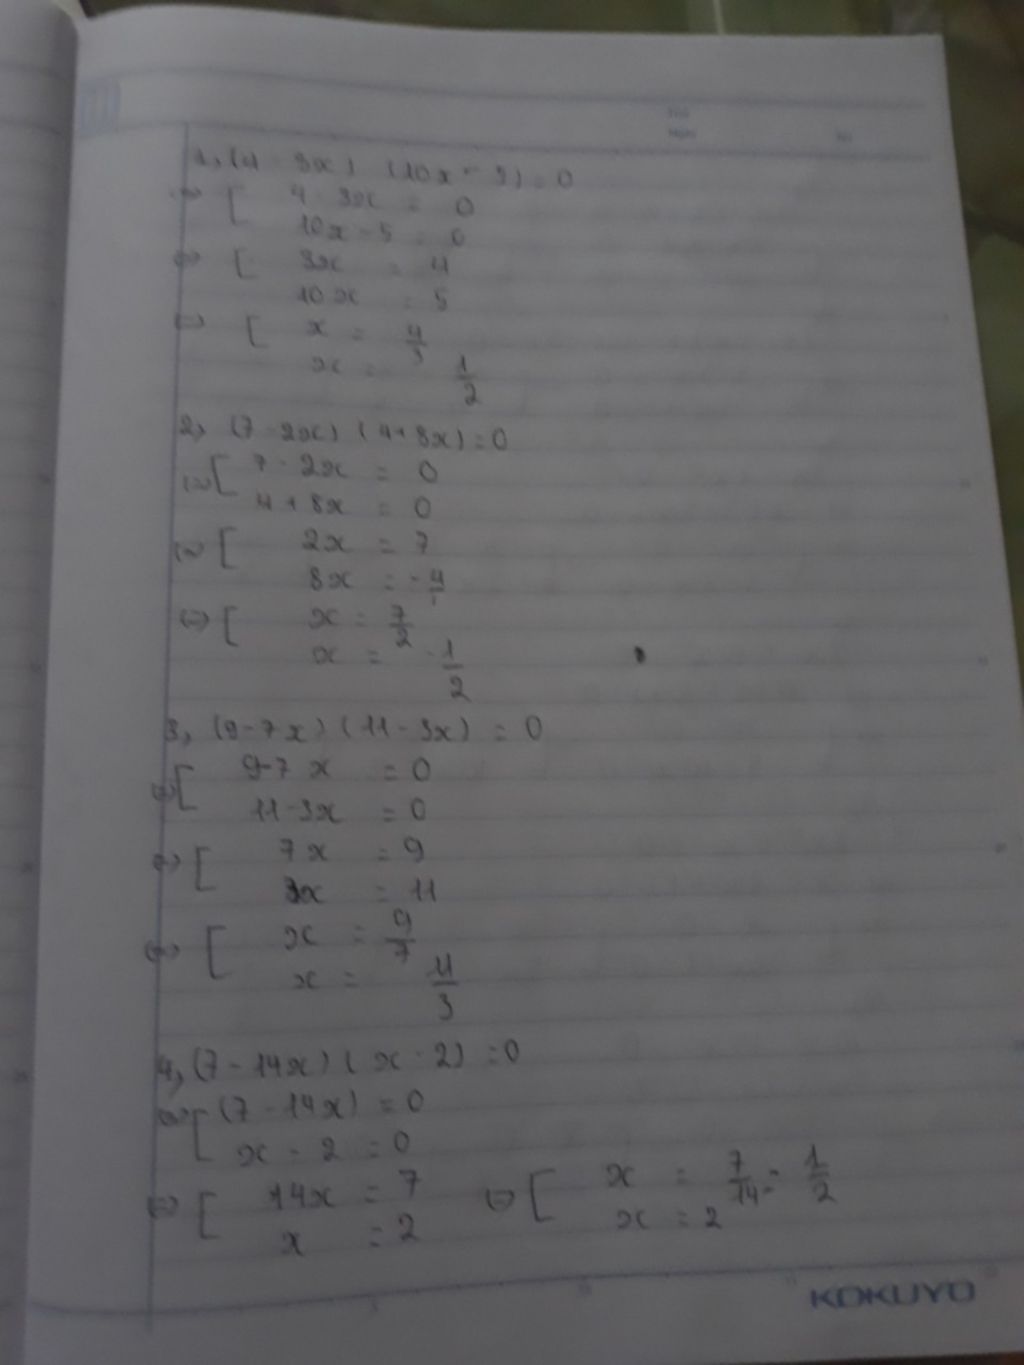 1, (4 - 3x) (10x - 5) = 0
<=> [ 4 - 3x = 0
10x - 5 = 0
<=> [ 3x = 4
10x = 5
<=> [ x = 4/3
x = 1/2
2, (7 - 2x) (4 + 8x) = 0
<=> [ 7 - 2x = 0
4 + 8x = 0
<=> [ 2x = 7
8x = -4
<=> [ x = 7/2
x = -1/2
3, (9 - 7x) (11 - 3x) = 0
<=> [ 9 - 7x = 0
11 - 3x = 0
<=> [ 7x = 9
3x = 11
<=> [ x = 9/7
x = 11/3
4, (7 - 14x) (x - 2) = 0
<=> [ (7 - 14x) = 0
x - 2 = 0
<=> [ 14x = 7 <=> [ x = 7/14 = 1/2
x = 2 x = 2
KOKUYO